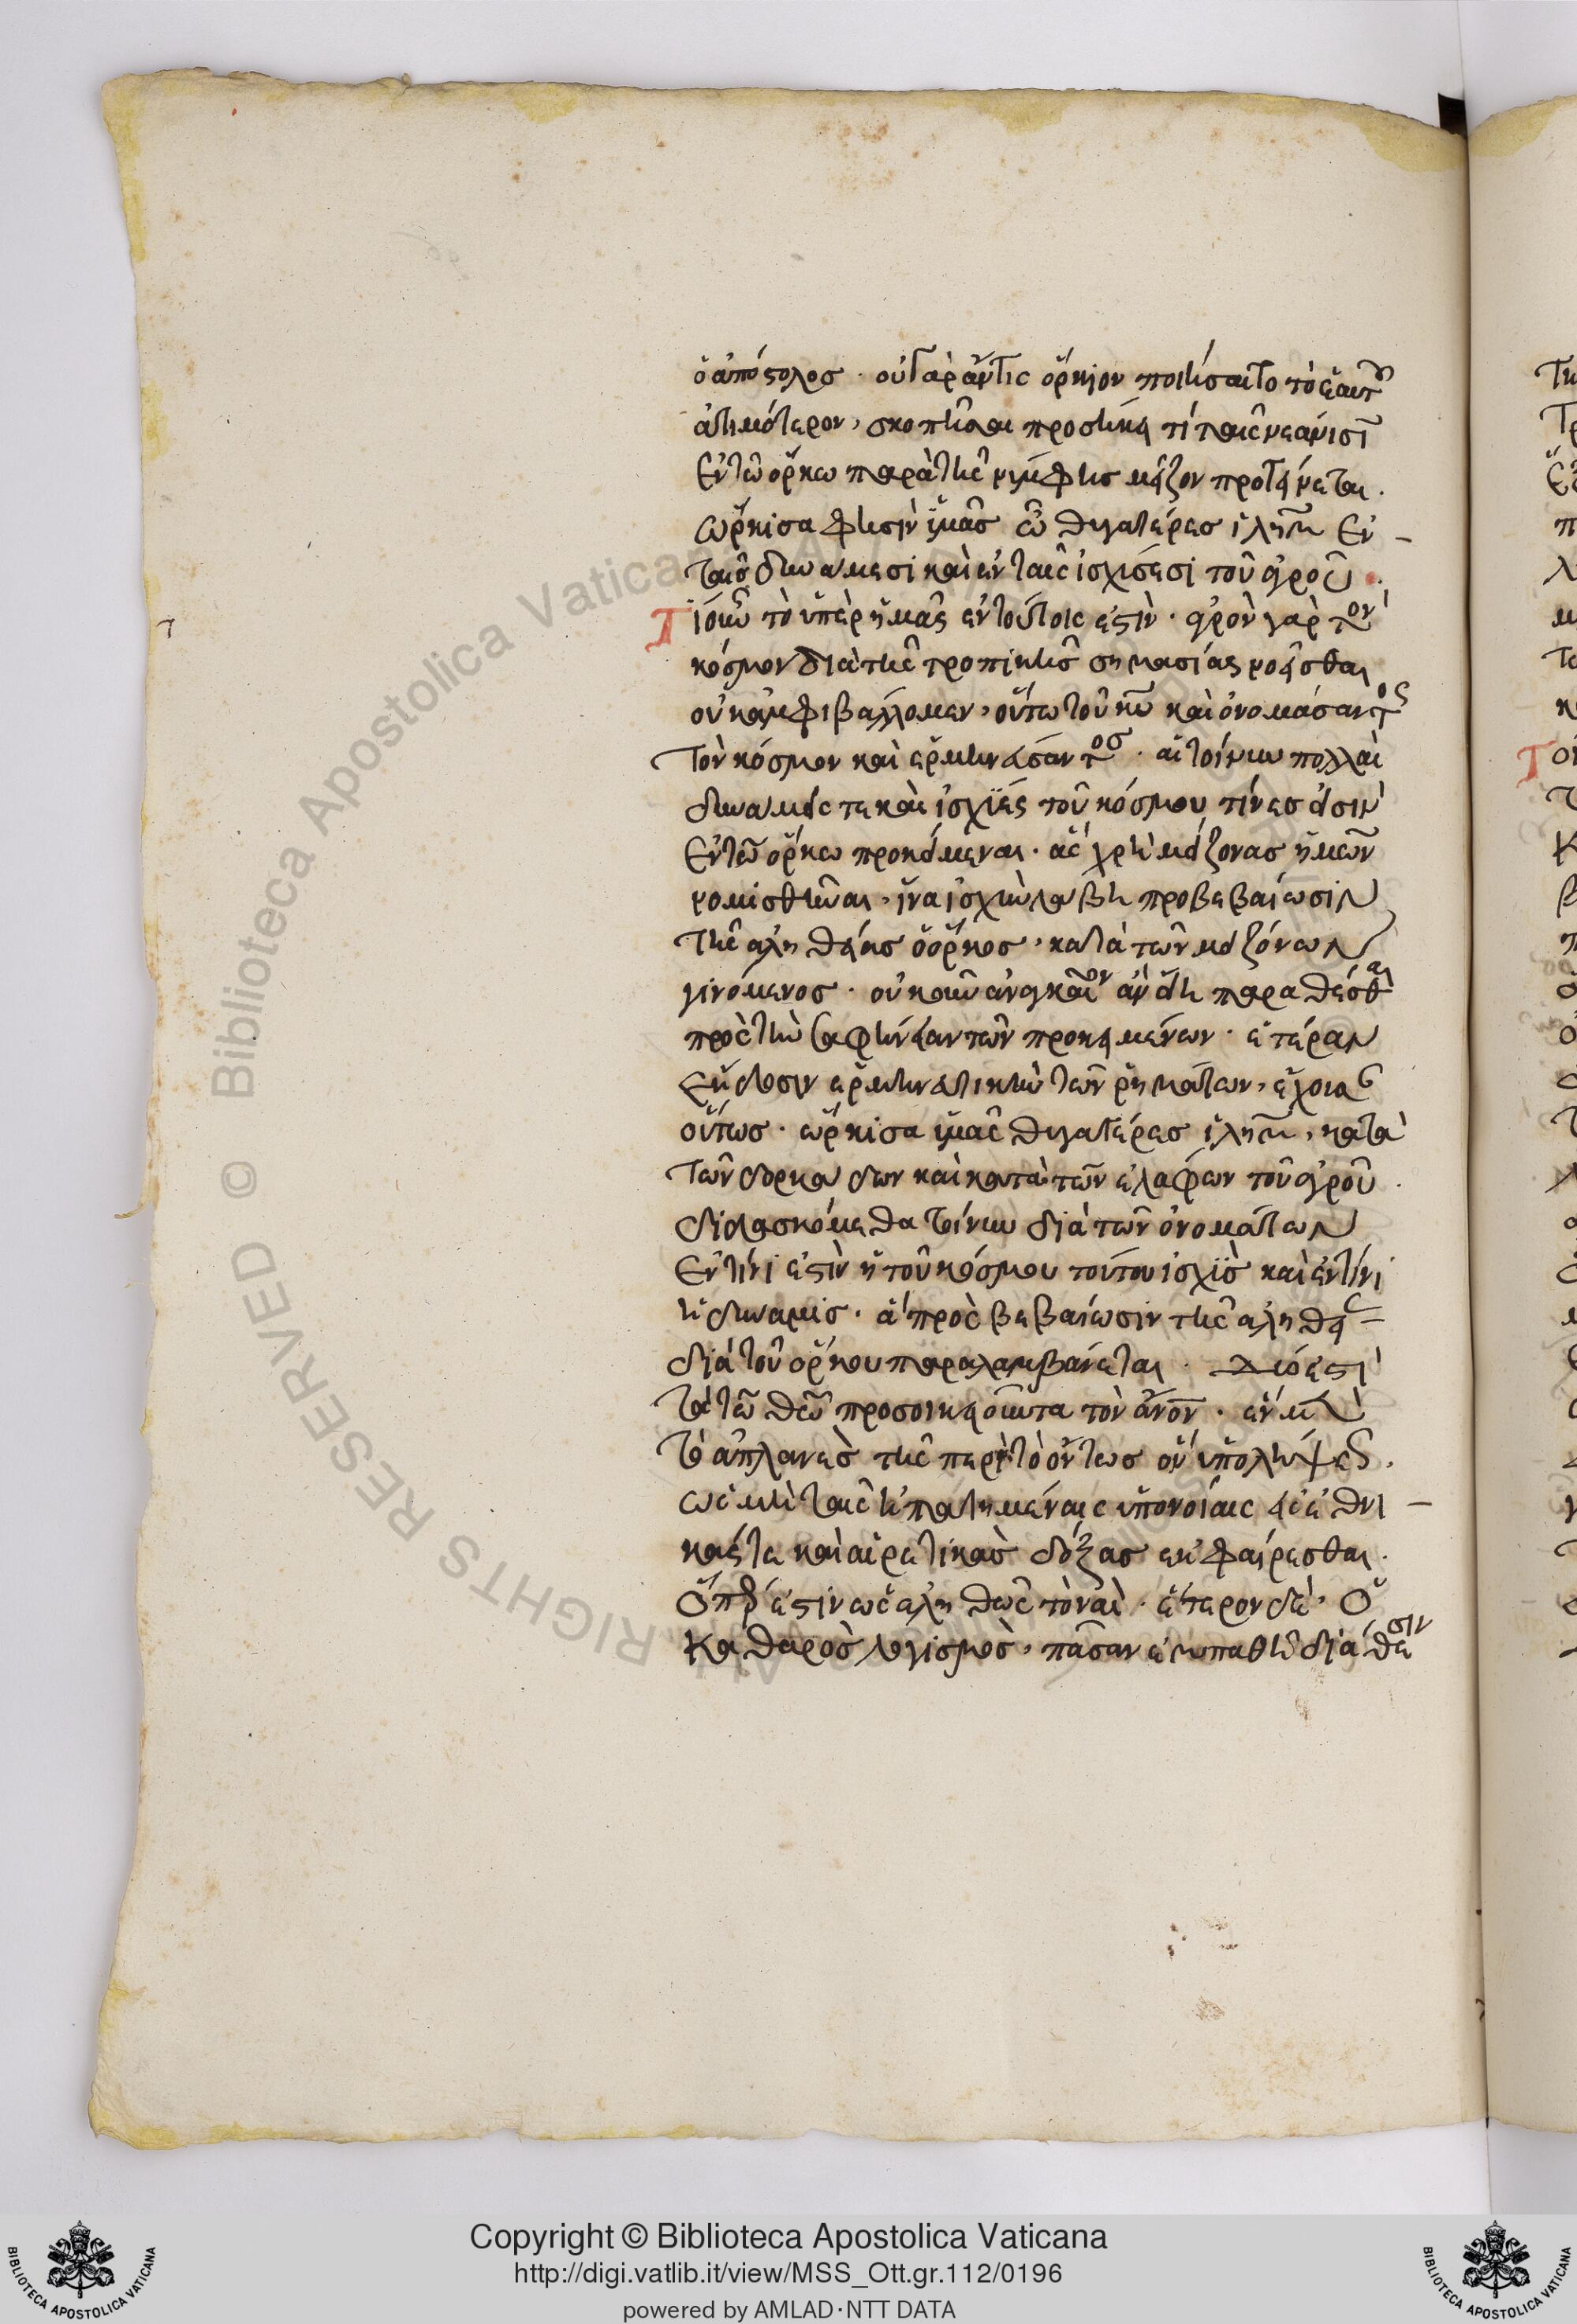 ὁ ἀπόστολος · οὐ γὰρ ἄν τις ὅρκιον ποιήσαιτο τὸ ἑαυτοῦ
ἀτιμότερον, σκοπῆσαι προσήκει τί ταῖς νεάνισι
Ἐν τῷ ὅρκω παρὰ τῆς νύμφης μεῖζον προτείνεται.
ὥρκισα φησὶν ὑμᾶς ὦ θυγατέρες ἰλημ Ἐν –
ταῖς δυναμεσι καὶ ἐν ταῖς ἰσχύσεσι τοῦ ἀγροῦ.
Τί οὖν τὸ ὑπὲρ ἡμᾶς ἐν τούτοις ἐστὶν · ἀγρὸν γὰρ τὸν
κόσμον διὰ τῆς τροπικῆς σημασίας νοεῖσθαι
οὐκ ἀμφιβάλλομεν, οὕτω τοῦ κυ καὶ ὀνομάσαντος
Τὸν κόσμον καὶ ἑρμηνεύσαντος · αἱ τοίνυν πολλαὶ
δυναμεις τε καὶ ἰσχύες τοῦ κόσμου τίνες εἰσὶν
Ἐν τῷ ὅρκω προκείμεναι · ἃς χρὴ μείζονας ἡμῶν
νομισθῆναι, ἵνα ἰσχὺν λάβη προβεβαίωσιν
τῆς ἀληθείας ὁ ὅρκος, κατὰ τῶν μειζόνων
γινόμενος · οὐκοῦν ἀναγκαῖον ἂν εἴη παραθέσθαι
πρὸς τὴν σαφήνειαν τῶν προκειμένων · ἑτέραν
Ἔκδοσιν ἑρμηνευτικὴν τῶν ῥημάτων, ἔχουσαν
οὕτως · ὥρκισα ὑμᾶς θυγατέρες ἰλημ, κατὰ
Τῶν δορκαδων καὶ κατὰ τῶν ἐλάφων τοῦ ἀγροῦ ·
διδασκόμεθα τοίνυν διὰ τῶν ὀνομάτων
Ἐν τίνι ἐστὶν ἡ τοῦ κόσμου τούτου ἰσχὺς καὶ ἐν τίνι
ἡ δυναμις · ἃ πρὸς βεβαίωσιν τῆς ἀληθείας
διὰ τοῦ ὅρκου παραλαμβάνεται · Δύο ἐστὶ
τὰ τῶ θεῶ προσοικειοῦντα τὸν ἄνον · ἓν μὲν
τὸ ἀπλανὲς τῆς περὶ τὸ ὄντως ὂν ὑπολήψεως.
ὡς μὴ ταῖς ἠπατημέναις ὑπονοίαις εἰς ἐθνι –
κάς τε καὶ αἱρετικὰς δόξας ἐκφαίρεσθαι.
Ὅπερ ἐστὶν ὡς ἀληθῶς τὸ ναὶ · ἕτερον δὲ, Ὁ
καθαρὸς λογισμὸς, πᾶσαν ἐμπαθῆ διάθεσιν
Copyright © Biblioteca Apostolica Vaticana
http://digi.vatlib.it/view/MSS_Ott.gr.112/0196
powered by AMLAD·NTT DATA